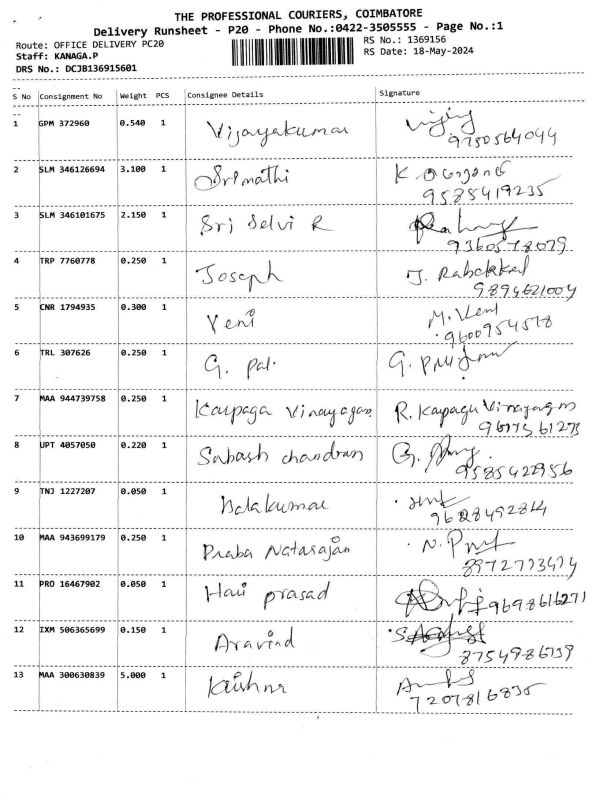 THE PROFESSIONAL COURIERS, COIMBATORE
Delivery Runsheet - P20 - Phone No.:0422-3505555 - Page No.:1
Route: OFFICE DELIVERY PC20
RS No.: 1369156
Staff: KANAGA.P
RS Date: 18-May-2024
DRS No.: DCJB136915601
S No Consignment No Weight PCS Consignee Details Signature
1 GPM 372960 0.540 1 Vijayakumar
9750564044
2 SLM 346126694 3.100 1 Srimathi K
9585419235
3 SLM 346101675 2.150 1 Sri Selvi R
9360578029
4 TRP 7760778 0.250 1 Joseph J.
9894621004
5 CNR 1794935 0.300 1 Veni M. Veni
9600954578
6 TRL 307626 0.250 1 G. pal. G.
7 MAA 944739758 0.250 1 Karpaga Vinayagam R. Kapaga Vinayagm
9617561273
8 UPT 4057050 0.220 1 Sabash chandran G.
9585422956
9 TNJ 1227207 0.050 1 Balakumar
9628492814
10 MAA 943699179 0.250 1 Praba Natarajan N.
8972773474
11 PRO 16467902 0.050 1 Hari prasad 9698616271
12 IXM 506365699 0.150 1 Aravind
8754986739
13 MAA 300630839 5.000 1 Krishna
7207816835